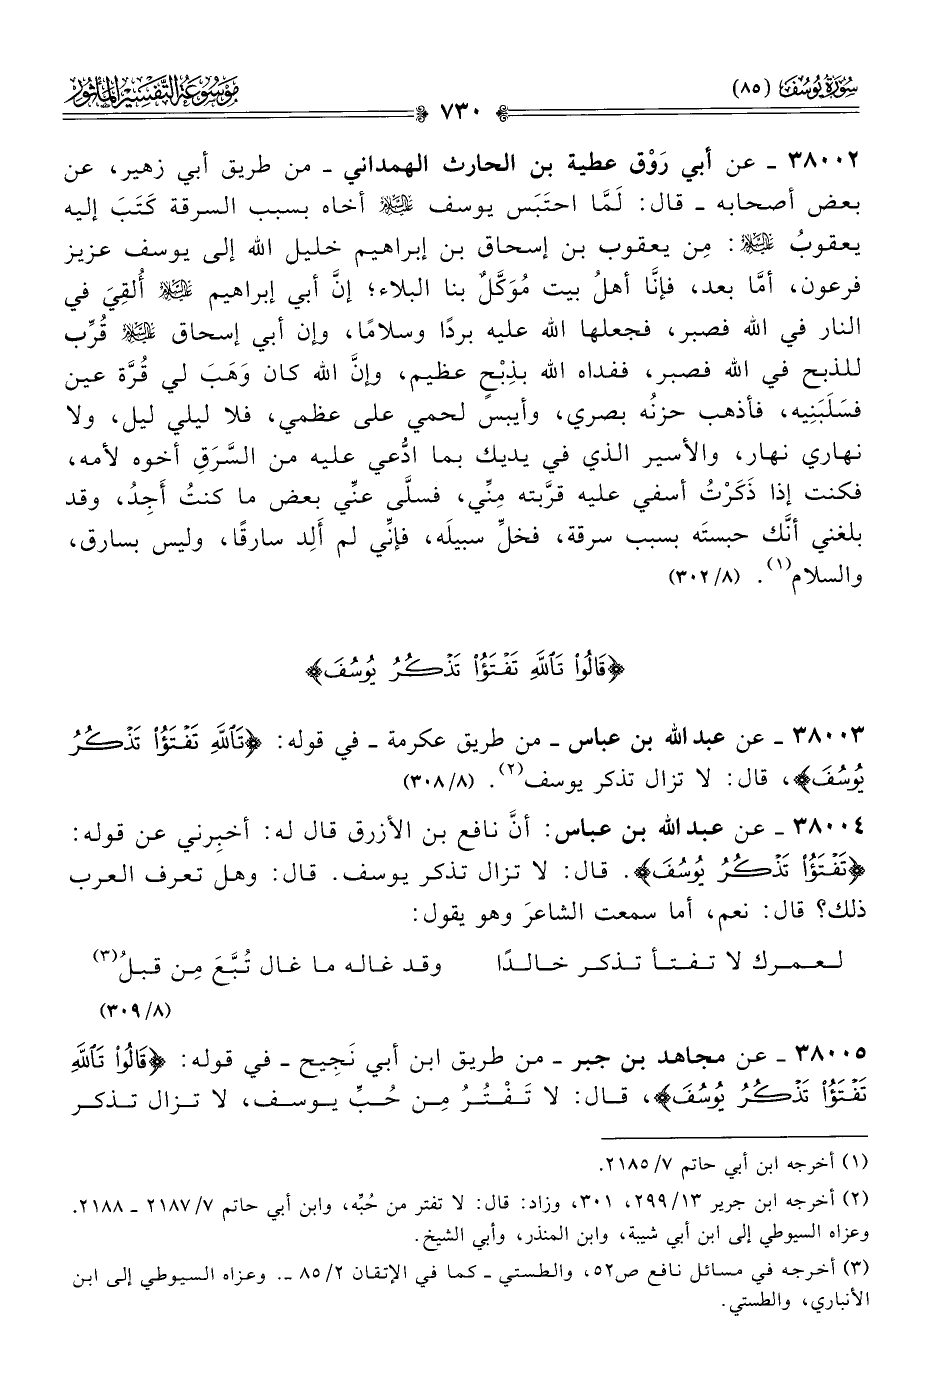 سُورَةُ يُوسُفَ (٨٥)
٧٣٠
مَوْسُوعَةُ التَّفْسِيرِ المَأْثُورِ
٣٨٠٠٢ ـ عن أبي رَوْق عطية بن الحارث الهمداني ـ من طريق أبي زهير، عن
بعض أصحابه ـ قال: لَمَّا احتَبَس يوسف عَلَيْهِ السَّلَام أخاه بسبب السرقة كَتَبَ إليه
يعقوبُ عَلَيْهِ السَّلَام: مِن يعقوب بن إسحاق بن إبراهيم خليل الله إلى يوسف عزيز
فرعون، أمَّا بعد، فإنَّا أهلُ بيت مُوَكَّلٌ بنا البلاء؛ إنَّ أبي إبراهيم عَلَيْهِ السَّلَام أُلقِيَ في
النار في الله فصبر، فجعلها الله عليه بردًا وسلامًا، وإن أبي إسحاق عَلَيْهِ السَّلَام قُرِّب
للذبح في الله فصبر، ففداه الله بذِبْحٍ عظيم، وإنَّ الله كان وَهَبَ لي قُرَّة عين
فسَلَبَنِيه، فأذهب حزنُه بصري، وأيبس لحمي على عظمي، فلا ليلي ليل، ولا
نهاري نهار، والأسير الذي في يديك بما ادُّعي عليه من السَّرَقِ أخوه لأمه،
فكنت إذا ذَكَرْتُ أسفي عليه قرَّبته مِنِّي، فسلَّى عنِّي بعض ما كنتُ أَجِدُ، وقد
بلغني أنَّك حبستَه بسبب سرقة، فخلِّ سبيلَه، فإنِّي لم أَلِد سارقًا، وليس بسارق،
والسلام(١). (٣٠٢/٨)
﴿قَالُوا۟ تَٱللَّهِ تَفْتَؤُا۟ تَذْكُرُ يُوسُفَ﴾
٣٨٠٠٣ ـ عن عبد الله بن عباس ـ من طريق عكرمة ـ في قوله: ﴿تَٱللَّهِ تَفْتَؤُا۟ تَذْكُرُ
يُوسُفَ﴾، قال: لا تزال تذكر يوسف(٢). (٣٠٨/٨)
٣٨٠٠٤ ـ عن عبد الله بن عباس: أنَّ نافع بن الأزرق قال له: أخبِرني عن قوله:
﴿تَفْتَؤُا۟ تَذْكُرُ يُوسُفَ﴾. قال: لا تزال تذكر يوسف. قال: وهل تعرف العرب
ذلك؟ قال: نعم، أما سمعت الشاعرَ وهو يقول:
لعمرك لا تفتأ تذكر خالدًا وقد غاله ما غال تُبَّعَ مِن قبلُ(٣)
(٣٠٩/٨)
٣٨٠٠٥ ـ عن مجاهد بن جبر ـ من طريق ابن أبي نَجِيح ـ في قوله: ﴿قَالُوا۟ تَٱللَّهِ
تَفْتَؤُا۟ تَذْكُرُ يُوسُفَ﴾، قال: لا تَفْتُرُ مِن حُبِّ يوسف، لا تزال تذكر
(١) أخرجه ابن أبي حاتم ٧/ ٢١٨٥.
(٢) أخرجه ابن جرير ١٣/ ٢٩٩، ٣٠١، وزاد: قال: لا تفتر من حُبِّه، وابن أبي حاتم ٧/ ٢١٨٧ ـ ٢١٨٨.
وعزاه السيوطي إلى ابن أبي شيبة، وابن المنذر، وأبي الشيخ.
(٣) أخرجه في مسائل نافع ص٥٢، والطستي ـ كما في الإتقان ٢/ ٨٥ ـ. وعزاه السيوطي إلى ابن
الأنباري، والطستي.